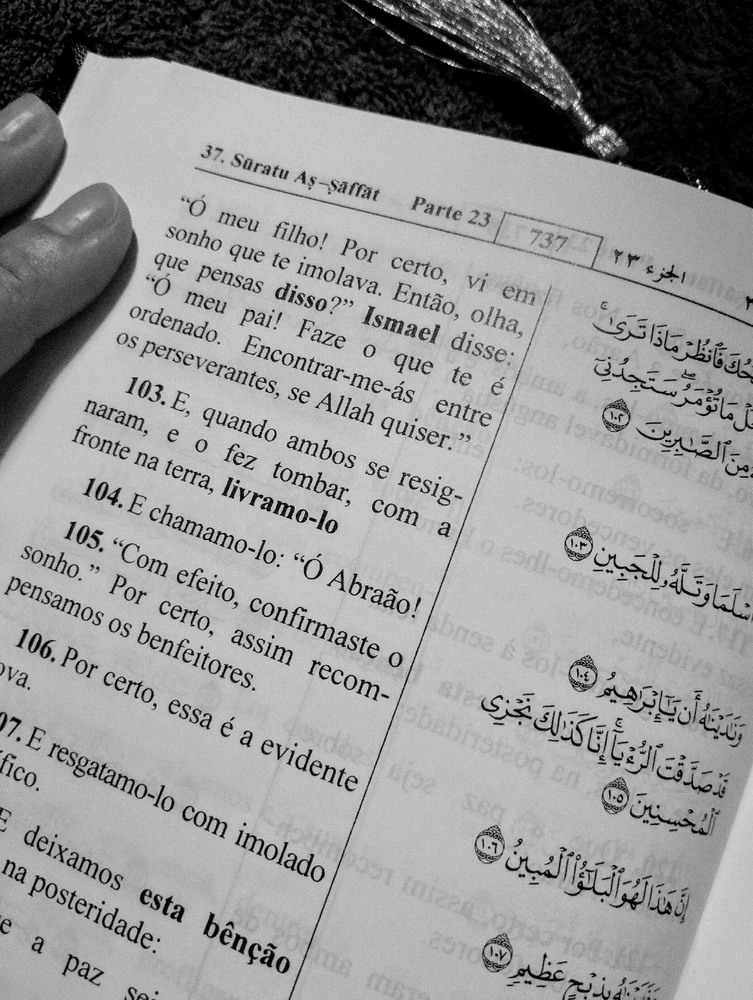 37. Sūratu Aṣ-Ṣāffāt Parte 23 737 الجزء ٢٣
“Ó meu filho! Por certo, vi em
sonho que te imolava. Então, olha,
que pensas disso?” Ismael disse:
“Ó meu pai! Faze o que te é
ordenado. Encontrar-me-ás entre
os perseverantes, se Allah quiser.”
103. E, quando ambos se resig-
naram, e o fez tombar, com a
fronte na terra, livramo-lo
104. E chamamo-lo: “Ó Abraão!
105. “Com efeito, confirmaste o
sonho.” Por certo, assim recom-
pensamos os benfeitores.
106. Por certo, essa é a evidente
ova.
07. E resgatamo-lo com imolado
fico.
E deixamos esta bênção
na posteridade:
e a paz sej
فَٱنظُرْ مَاذَا تَرَىٰ ۚ
مَا تُؤْمَرُ ۖ سَتَجِدُنِىٓ
مِنَ ٱلصَّٰبِرِينَ ١٠٢
أَسْلَمَا وَتَلَّهُۥ لِلْجَبِينِ ١٠٣
وَنَٰدَيْنَٰهُ أَن يَٰٓإِبْرَٰهِيمُ ١٠٤
قَدْ صَدَّقْتَ ٱلرُّءْيَآ ۚ إِنَّا كَذَٰلِكَ نَجْزِى
ٱلْمُحْسِنِينَ ١٠٥
إِنَّ هَٰذَا لَهُوَ ٱلْبَلَٰٓؤُا۟ ٱلْمُبِينُ ١٠٦
وَفَدَيْنَٰهُ بِذِبْحٍ عَظِيمٍ ١٠٧